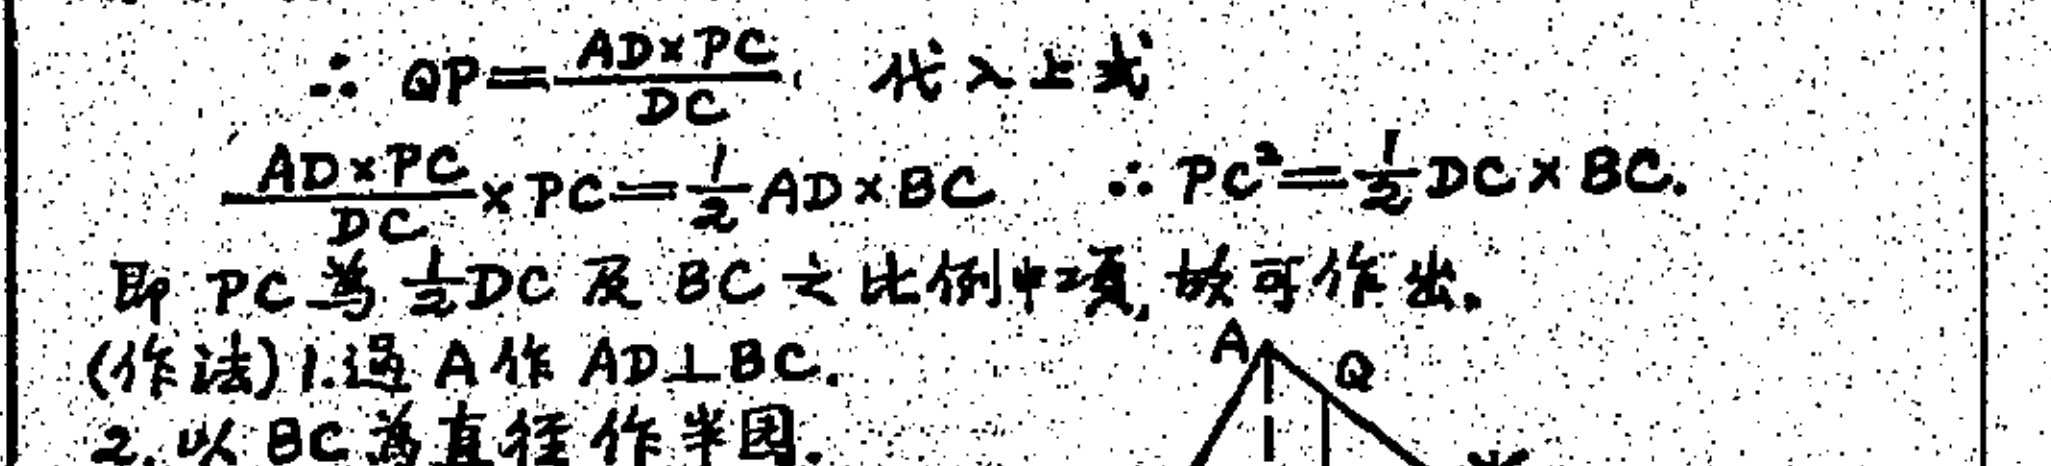 ∴ QP=\frac{AD×PC}{DC}, 代入上式
\frac{AD×PC}{DC}×PC=\frac{1}{2}AD×BC ∴ PC²=\frac{1}{2}DC×BC.
即 PC 為 \frac{1}{2}DC 及 BC 之比例中項, 故可作出。
(作法) 1. 過 A 作 AD⊥BC.
2. 以 BC 為直徑作半圆.
A
Q